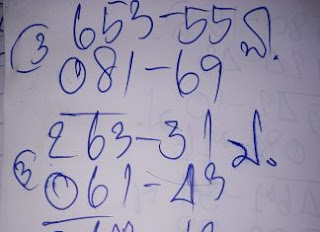 ③ 653-55 ป.
081-69
263-31 ป.
③ 061-43